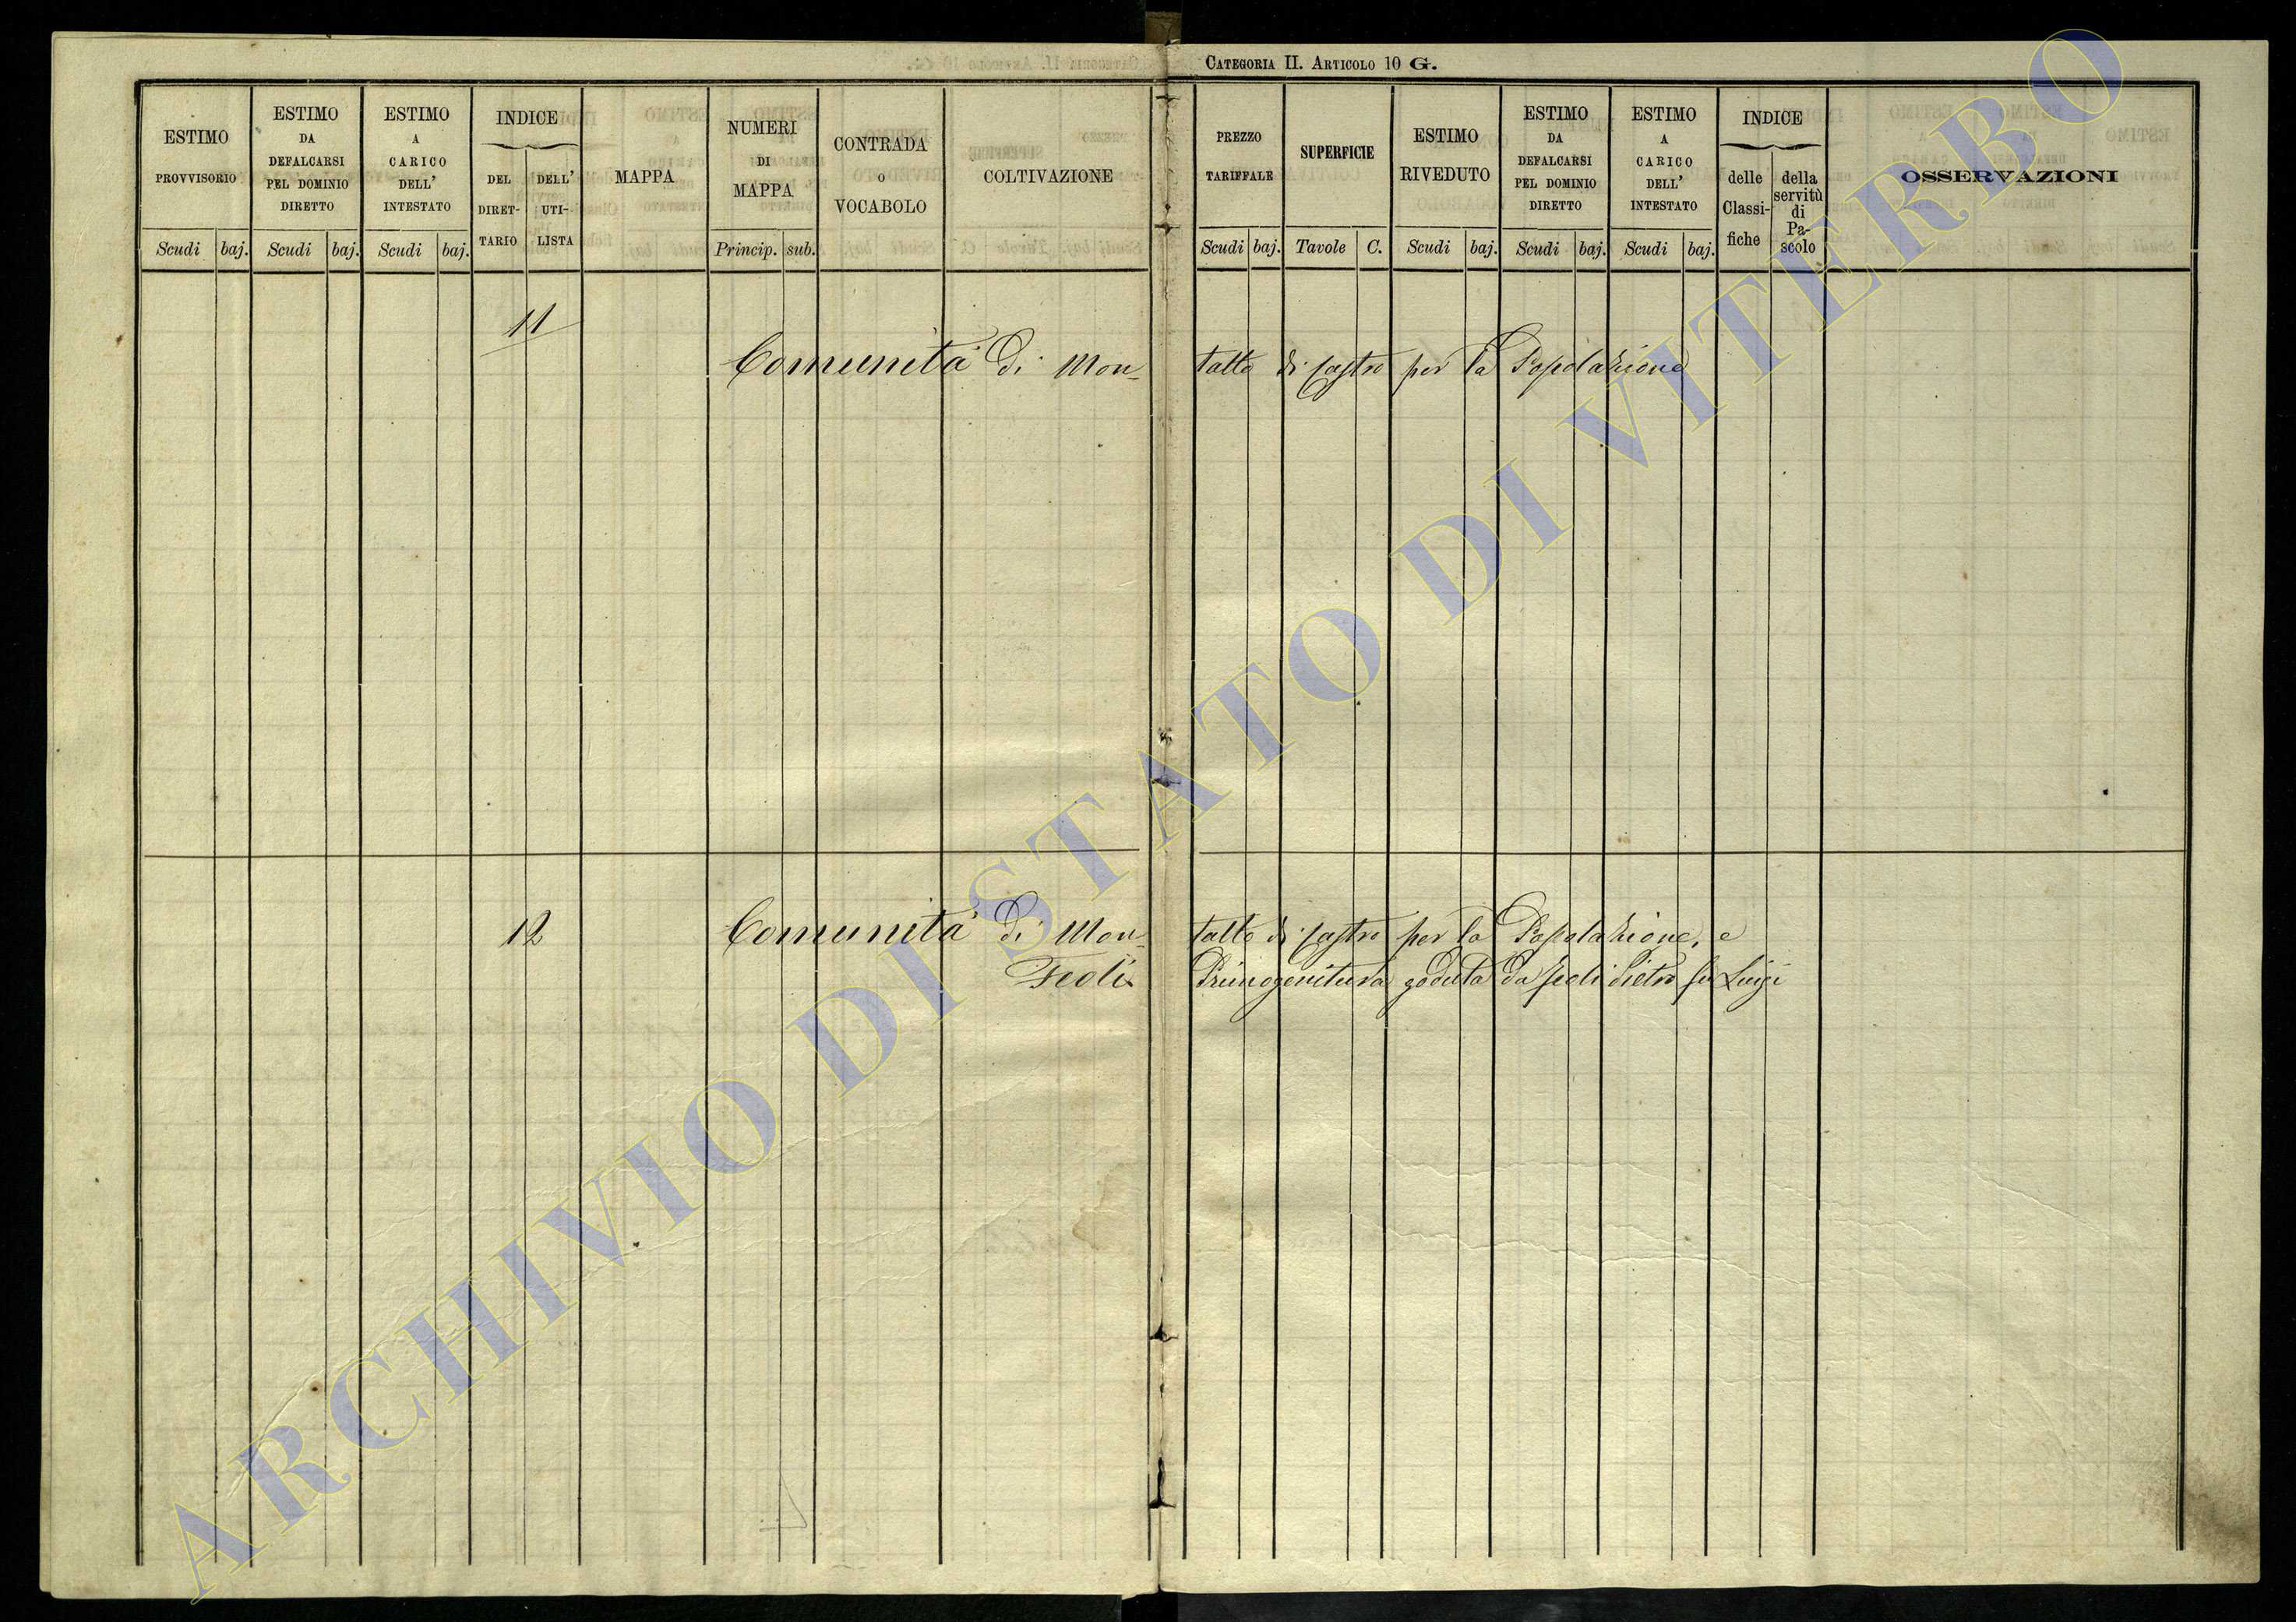 CATEGORIA II. ARTICOLO 10 G.
ESTIMO PROVVISORIO
Scudi baj.
ESTIMO DA DEFALCARSI PEL DOMINIO DIRETTO
Scudi baj.
ESTIMO A CARICO DELL' INTESTATO
Scudi baj.
INDICE
DEL DIRET-TARIO
DELL' UTI-LISTA
MAPPA
NUMERI DI MAPPA
Princip. sub.
CONTRADA O VOCABOLO
COLTIVAZIONE
PREZZO TARIFFALE
Scudi baj.
SUPERFICIE
Tavole C.
ESTIMO RIVEDUTO
Scudi baj.
ESTIMO DA DEFALCARSI PEL DOMINIO DIRETTO
Scudi baj.
ESTIMO A CARICO DELL' INTESTATO
Scudi baj.
INDICE
delle Classi-fiche
della servitù di Pa-scolo
OSSERVAZIONI
11
Comunità di Mon- talto di Castro per la Popolazione
12
Comunità di Mon- talto di Castro per la Popolazione, e
Fedi Primogenitura goduta da Fedi Pietro fu Luigi
ARCHIVIO DI STATO DI VITERBO